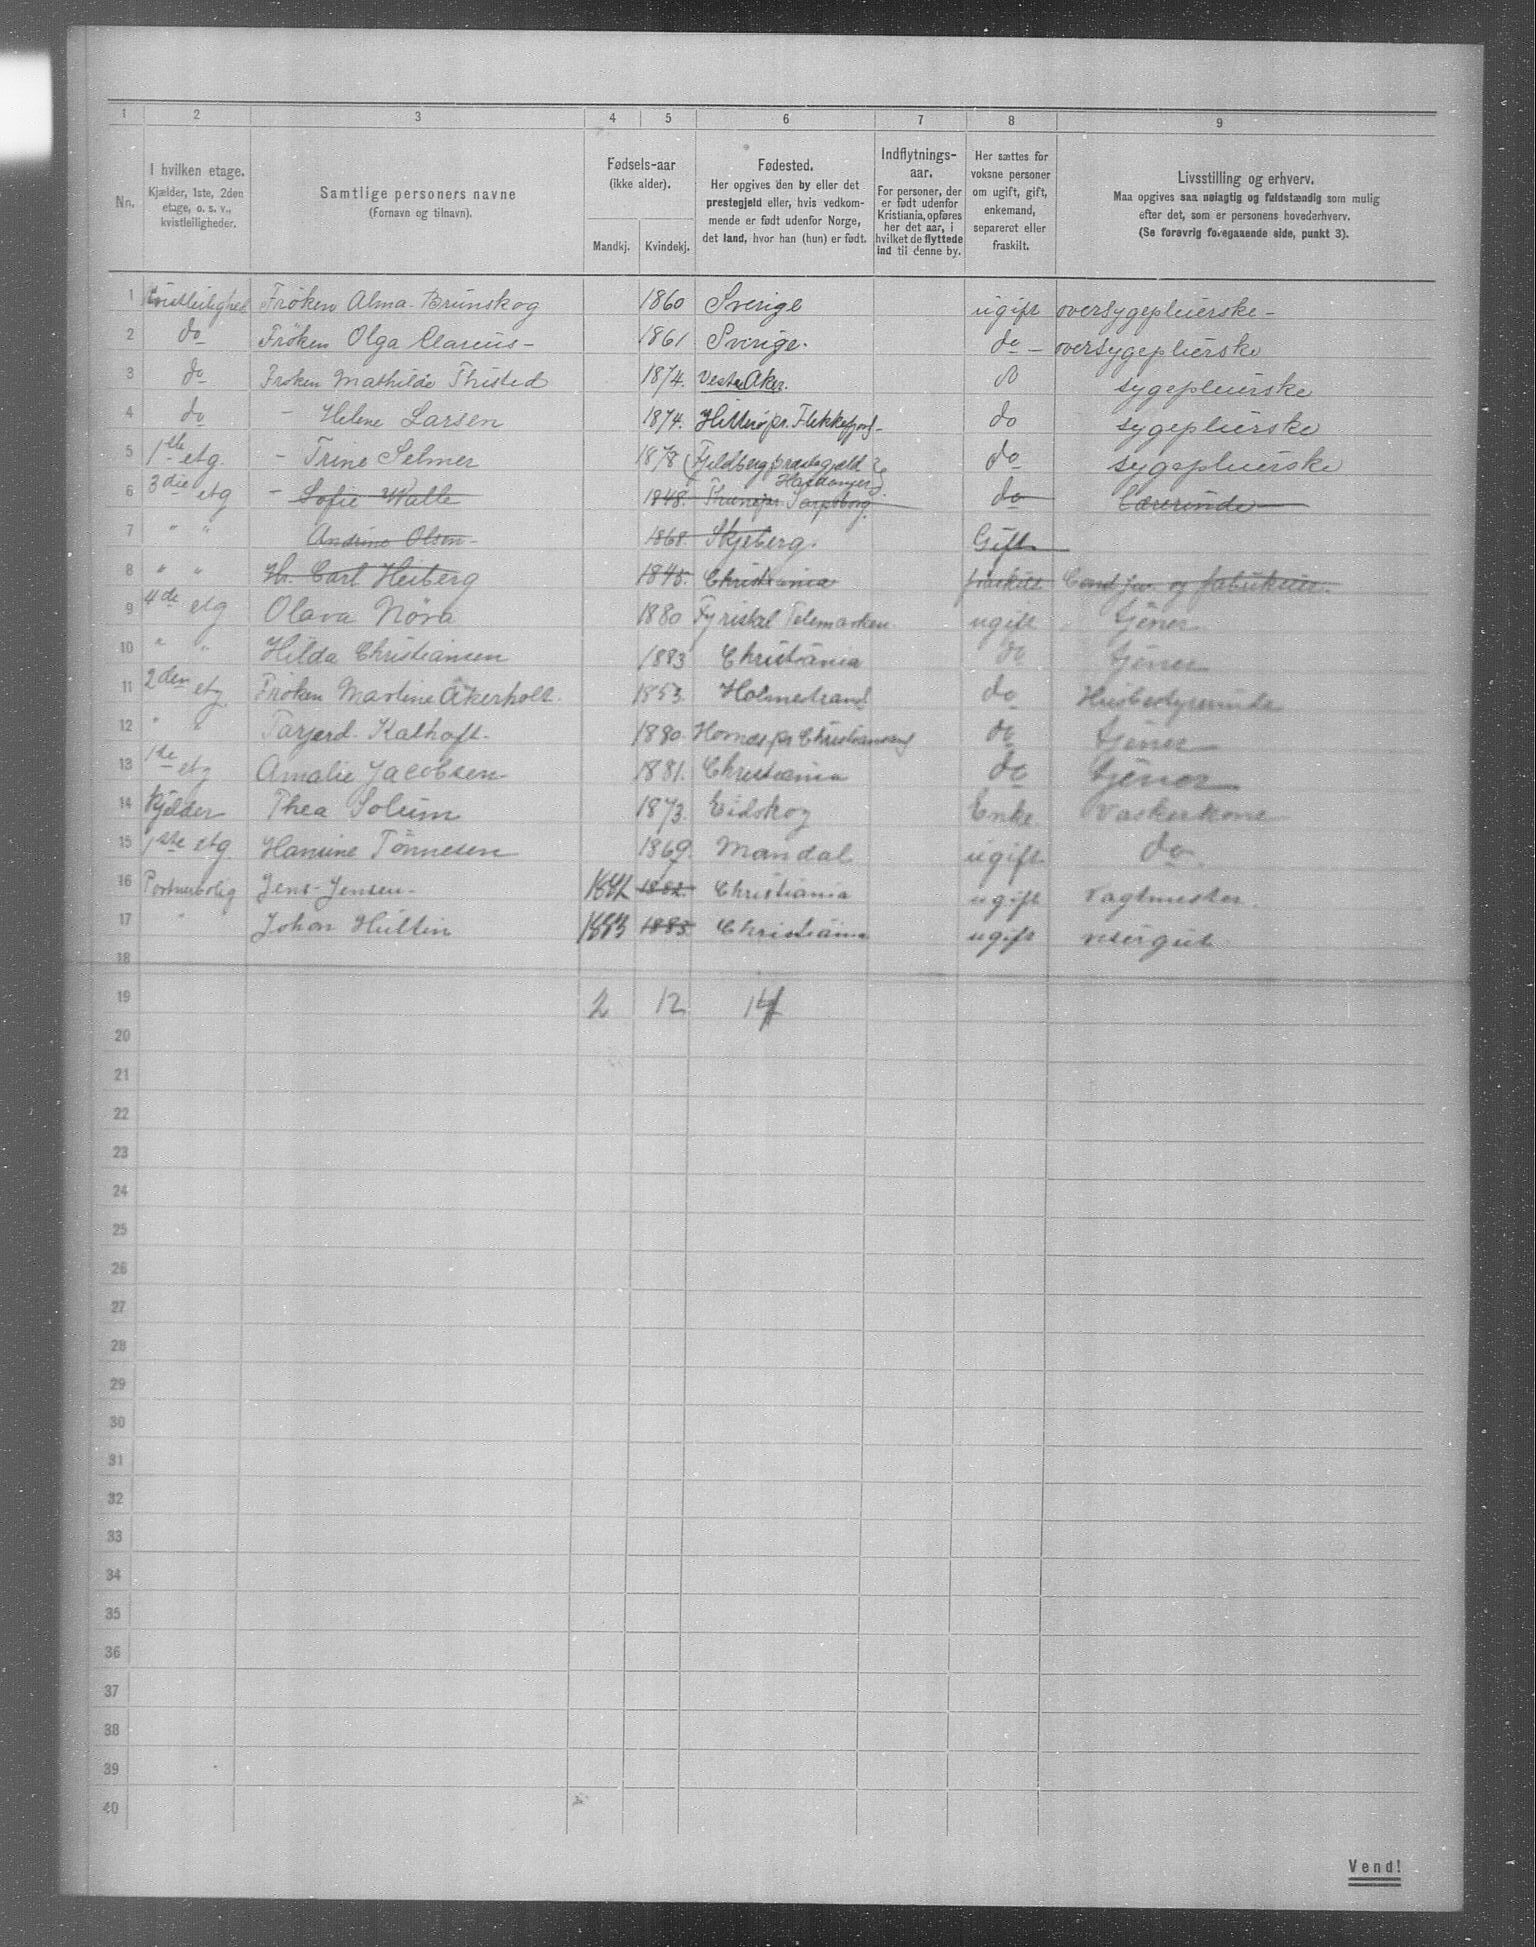 1 2 3 4 5 6 7 8 9
Nn. I hvilken etage. Kjælder, 1ste, 2den etage, o. s. v., kvistleiligheder. Samtlige personers navne (Fornavn og tilnavn). Fødsels-aar (ikke alder). Mandkj. Kvindekj. Fødested. Her opgives den by eller det prestegjeld eller, hvis vedkommende er født udenfor Norge, det land, hvor han (hun) er født. Indflytnings-aar. For personer, der er født udenfor Kristiania, opføres her det aar, i hvilket de flyttede ind til denne by. Her sættes for voksne personer om ugift, gift, enkemand, separeret eller fraskilt. Livsstilling og erhverv. Maa opgives saa nøiagtig og fuldstændig som mulig efter det, som er personens hovederhverv. (Se forøvrig foregaaende side, punkt 3).
1 Kvistleilighed Frøken Alma Brunskog 1860 Sverige ugift oversygepleierske -
2 do Frøken Olga Clareus - 1861 Sverige. do - oversygepleierske
3 do Frøken Mathilde Thisted 1874. Vestre Aker. do sygepleierske
4 do - Helene Larsen 1874. Hitterø pr. Flekkefjord - do sygepleierske
5 1ste etg. - Trine Selmer 1878 (Fjeldberg præstegjæld Hardanger) do sygepleierske
6 3die etg - Sofie Walle 1848. Thune pr. Sarpsborg. do Lærerinde
7 " " Andrine Olsen - 1868 Skjeberg. Gift
8 " " Hr. Carl Heiberg 1845. Christiania fraskilt Cand jur. og fabrikeier.
9 4de etg Olava Nöra 1880 Fyrisdal Telemarken ugift tjener
10 " " Hilda Christiansen 1883 Christiania do tjener
11 2den etg. Frøken Martine Akerholt. 1853. Holmestrand do Husbestyrerinde
12 " " Tarjerd Kalhoft. 1880 Hornæs pr Christianssand do tjener
13 1ste etg Amalie Jacobsen 1881. Christiania do tjener
14 Kjelder Thea Solum 1873. Eidskog Enke Vaskerkone
15 1ste etg. Hanine Tönnesen 1869. Mandal ugift do.
16 Portnerbolig Jens Jensen - 1882. Christiania ugift Vagtmester.
17 " Johan Hultin 1883 1883 Christiania ugift visergut
18
19 2 12 14
20
21
22
23
24
25
26
27
28
29
30
31
32
33
34
35
36
37
38
39
40
Vend!